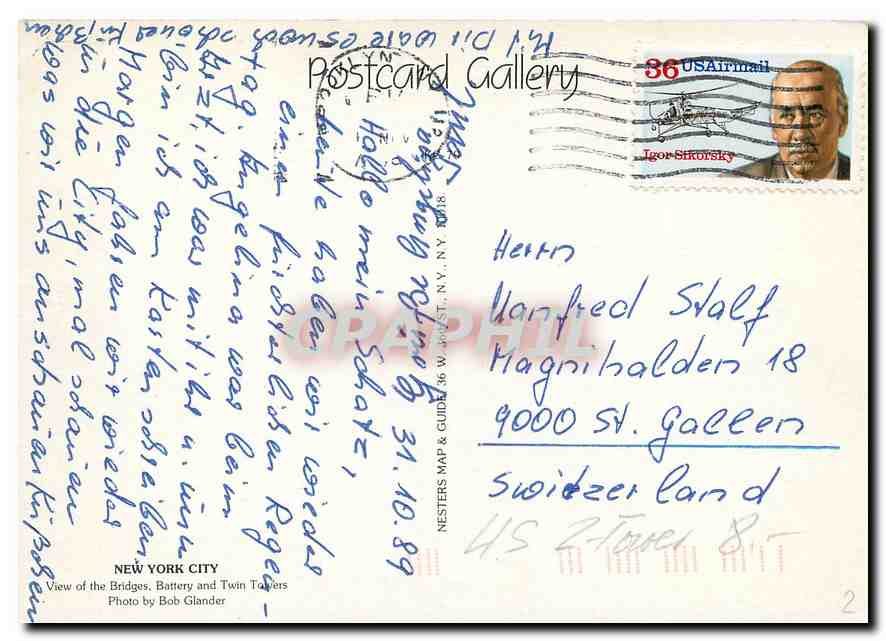 Postcard Gallery
36 USAirmail
Igor Sikorsky
31.10.89
Hallo mein Schatz,
heute haben wir wieder
einen fürchterlichen Regen-
tag. Angelina war beim
Arzt, ich war mit ihr u. nun
bin ich am Karten schreiben.
Morgen fahren wir wieder
in die City, mal schauen
was wir uns anschauen Küßchen
Mit Dir wäre es noch
schöner Küßchen
Herrn
Manfred Stalf
Magnihalden 18
9000 St. Gallen
Switzerland
US 2-Tower 8,-
NESTERS MAP & GUIDE, 36 W. 36th ST., N.Y., N.Y. 10018
NEW YORK CITY
View of the Bridges, Battery and Twin Towers
Photo by Bob Glander
CPAPHIL
2